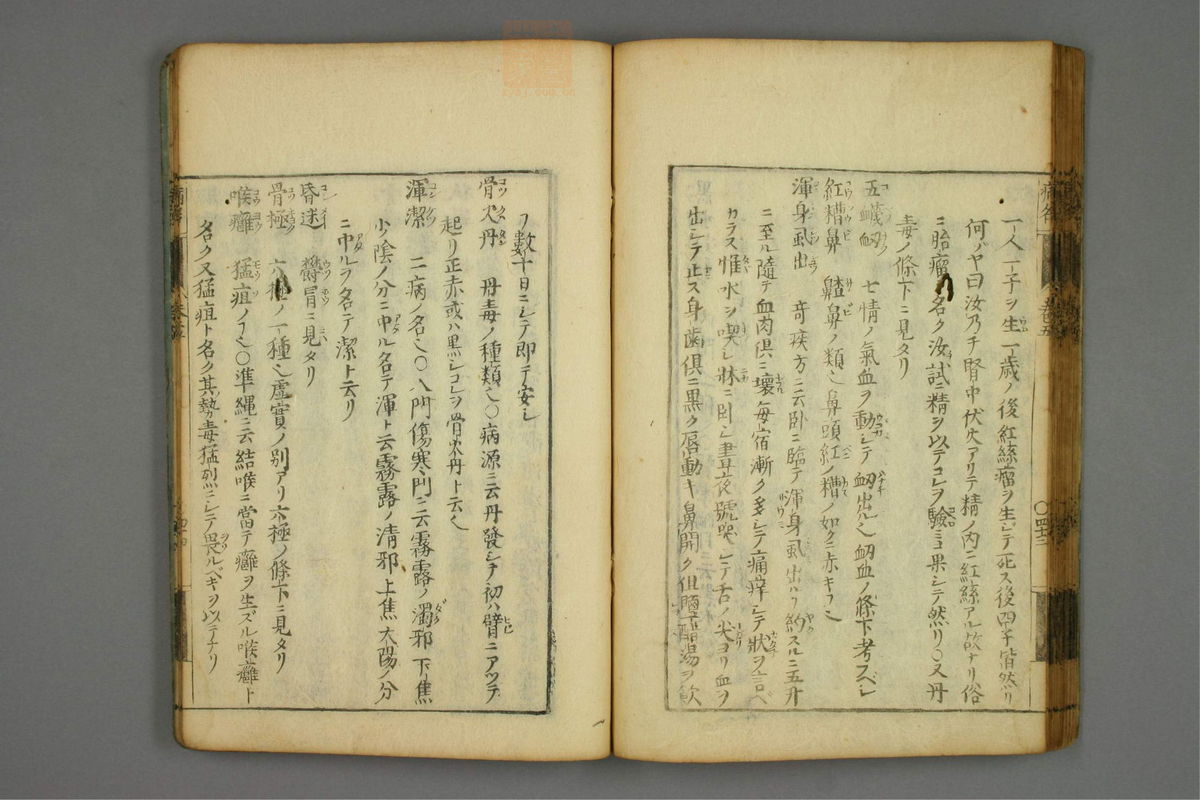 一人一子ヲ生一歳ノ後紅絲瘤ヲ生シテ死ス後四子皆然リ
何ソヤ曰汝乃チ腎中伏火アリテ精ノ内ニ紅絲アル故ナリ俗
ニ瘤ト名ク汝試ニ精ヲ以テコレヲ驗ヨ果シテ然リ〇又丹
毒ノ條下ニ見タリ
五衄 七情ノ氣血ヲ動シテ衄出ル也衄血ノ條下考スベシ
紅糟鼻 齄鼻ノ類也鼻頭紅ノ糟ノ如クニ赤キヲ也
渾身虱出 奇疾方ニ云卧ニ臨テ渾身虱出ルヿ約スルニ五升
ニ至ル隨テ血肉倶ニ壞毎宿漸ク多シテ痛痒シテ狀ヲ言ベ
カラス惟水ヲ喫シ牀ニ卧シ晝夜號哭シテ舌ノ尖ヨリ血ヲ
出シテ止ス身歯倶ニ黒ク唇動キ鼻開ク但鹽醋湯ヲ飲
フ數十日ニシテ即チ安シ
骨火丹 丹毒ノ種類也〇病源ニ云丹發シテ初ハ臂ニアツテ
起リ正赤或ハ黒シコレヲ骨火丹ト云也
渾潔 二病ノ名也〇八門傷寒門ニ云霧露ノ濁邪下リ焦
少陰ノ分ニ中ル名テ渾ト云霧露ノ清邪上焦太陽ノ分
ニ中ルヲ名テ潔ト云リ
昏迷 欝冒ニ見タリ
骨極 六極ノ一種也虚實ノ別アリ六極ノ條下ニ見タリ
喉癰 猛疽ノヿ也〇準縄ニ云結喉ニ當テ癰ヲ生ズル喉癰ト
名ク又猛疽ト名ク其勢毒猛烈ニシテ畏ルベキヲ以テナリ